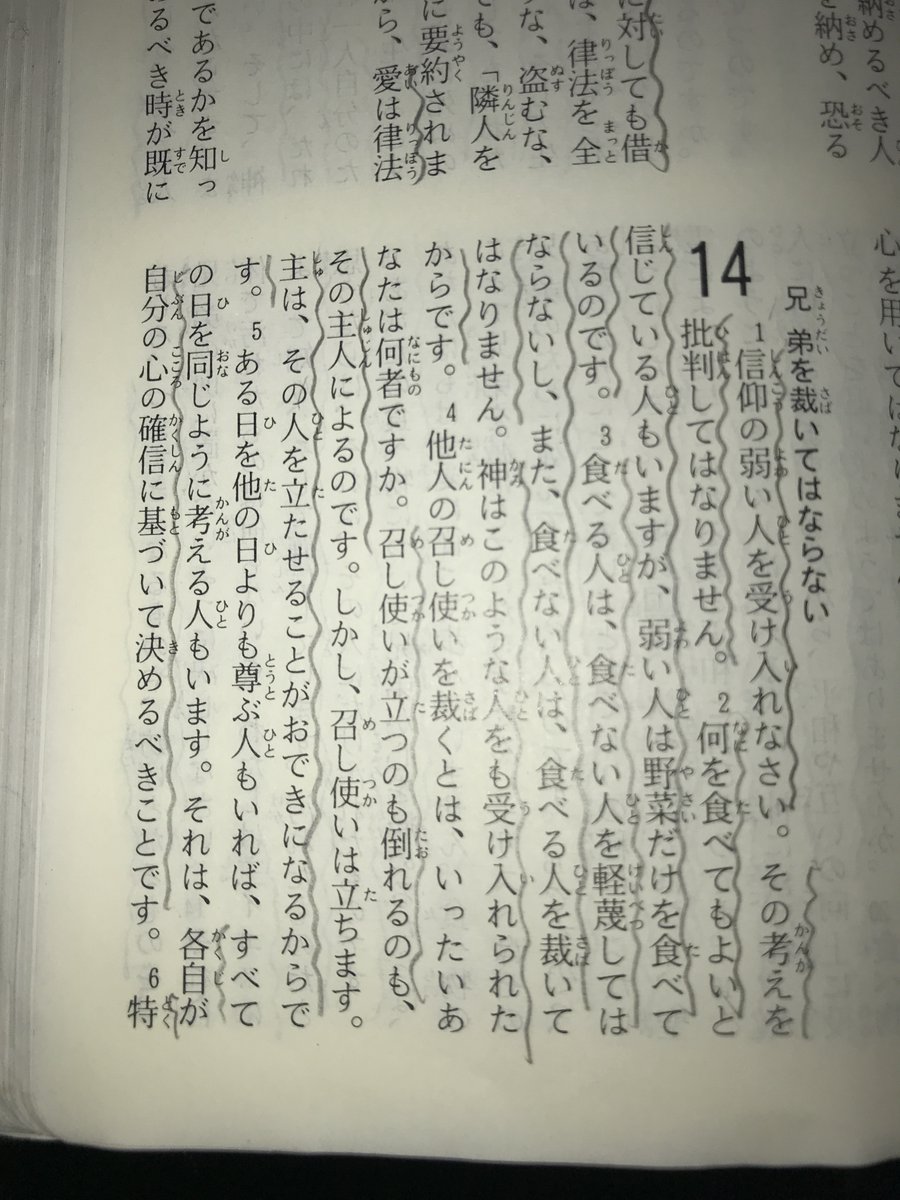 納めるべき人
を納め、恐る
に対しても借
は、律法を全
な、盗むな、
も、「隣人を
に要約されま
ら、愛は律法
であるかを知っ
るべき時が既に
心を用いては
兄弟を裁いてはならない
14
1信仰の弱い人を受け入れなさい。その考えを
批判してはなりません。2何を食べてもよいと
信じている人もいますが、弱い人は野菜だけを食べて
いるのです。3食べる人は、食べない人を軽蔑しては
ならないし、また、食べない人は、食べる人を裁いて
はなりません。神はこのような人をも受け入れられた
からです。4他人の召し使いを裁くとは、いったいあ
なたは何者ですか。召し使いが立つのも倒れるのも、
その主人によるのです。しかし、召し使いは立ちます。
主は、その人を立たせることがおできになるからで
す。5ある日を他の日よりも尊ぶ人もいれば、すべて
の日を同じように考える人もいます。それは、各自が
自分の心の確信に基づいて決めるべきことです。6特